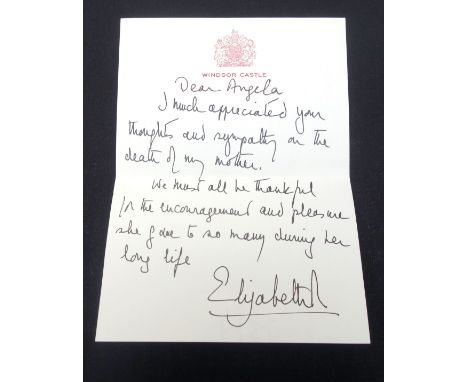 WINDSOR CASTLE
Dear Angela
I much appreciated your
thoughts and sympathy on the
death of my mother.
We must all be thankful
for the encouragement and pleasure
she gave to so many during her
long life
Elizabeth R